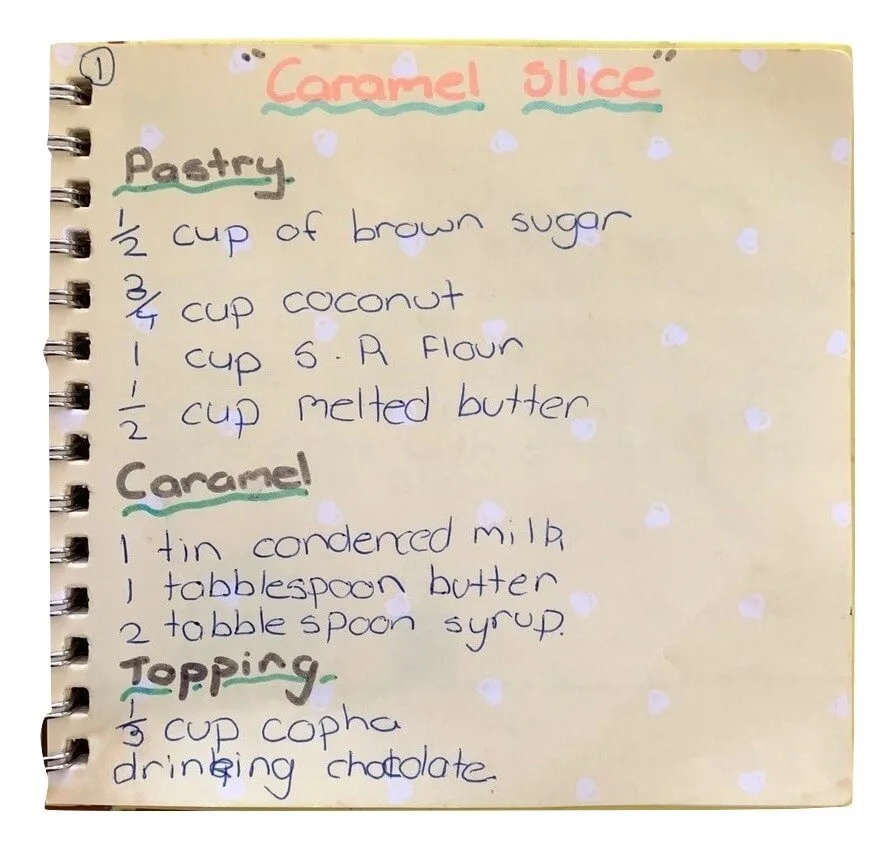 1
"Caramel Slice"
Pastry
1/2 cup of brown sugar
3/4 cup coconut
1 cup S.R Flour
1/2 cup melted butter
Caramel
1 tin condenced milk
1 tabblespoon butter
2 tabble spoon syrup.
Topping.
1/3 cup copha
drinking chocolate.